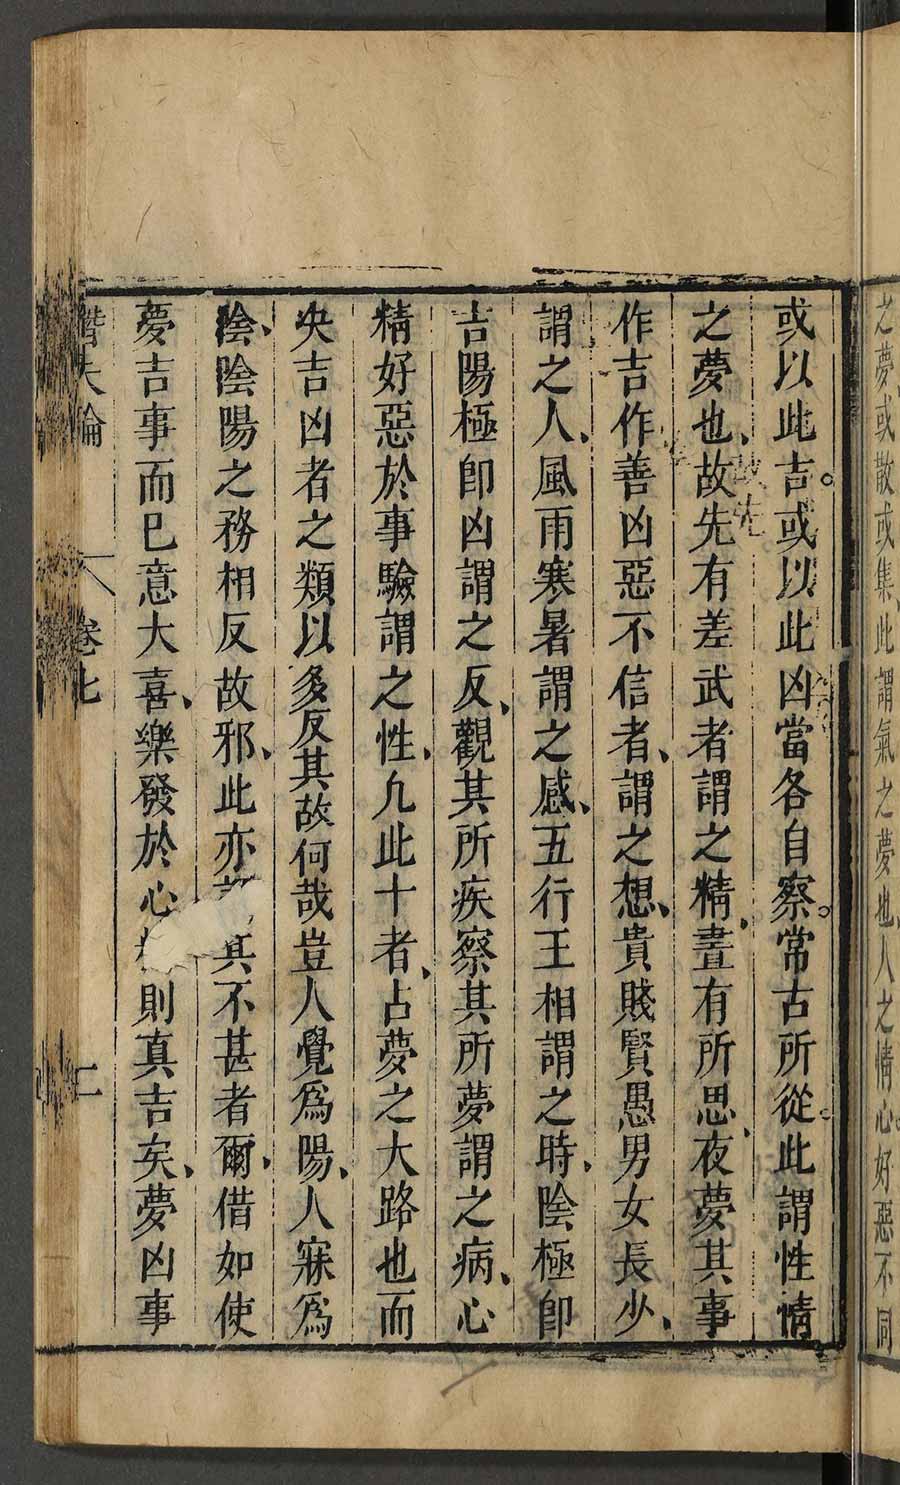 之夢或散或集此謂氣之夢也人之情心好惡不同
或以此吉或以此凶當各自察常古所從此謂性情
之夢也故先有差武者謂之精晝有所思夜夢其事
作吉作善凶惡不信者謂之想貴賤賢愚男女長少
謂之人風雨寒暑謂之感五行王相謂之時陰極卽
吉陽極卽凶謂之反觀其所疾察其所夢謂之病心
精好惡於事驗謂之性凢此十者占夢之大路也而
央吉凶者之類以多反其故何哉豈人覺爲陽人寐爲
陰陰陽之務相反故邪此亦其不甚者爾借如使
夢吉事而巳意大喜樂發於心則真吉矣夢凶事
潛夫論 卷七 二